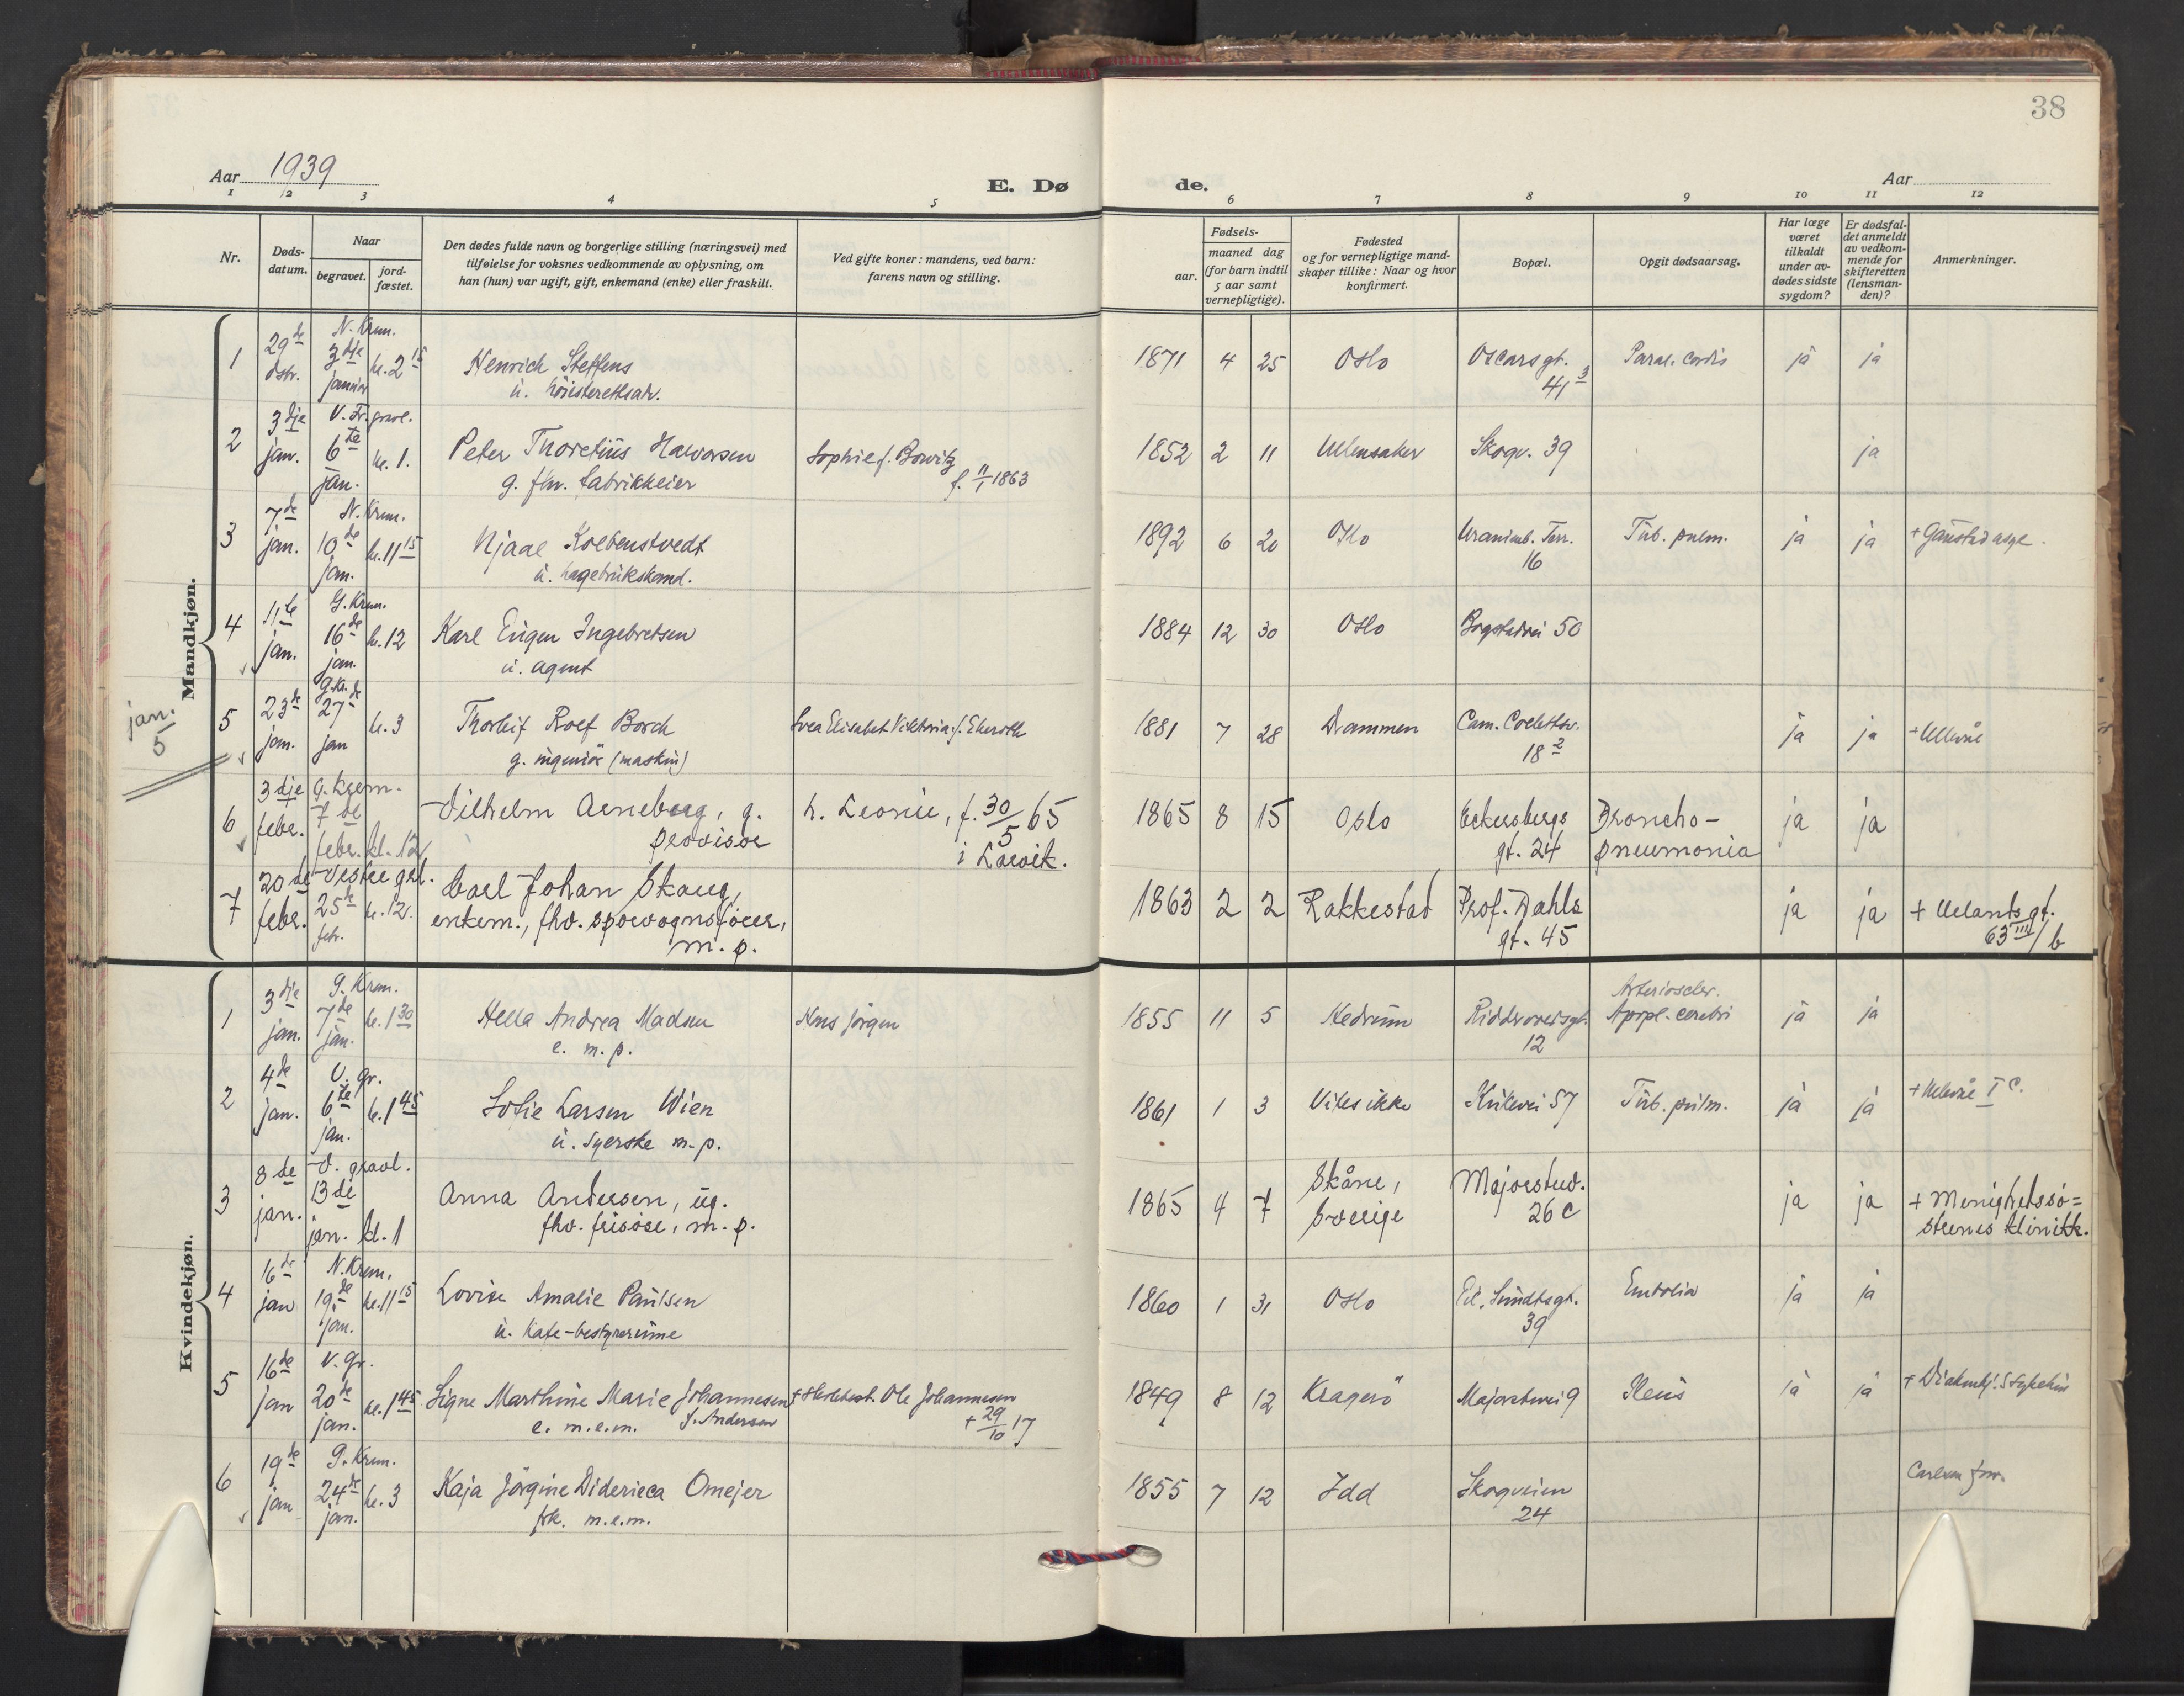 38
Aar 1939
E. Dø
de.
Aar
1 2 3 4 5 6 7 8 9 10 11 12
Nr.
Døds-
datum.
Naar
begravet.
jord-
fæstet.
Den dødes fulde navn og borgerlige stilling (næringsvei) med
tilføielse for voksnes vedkommende av oplysning, om
han (hun) var ugift, gift, enkemand (enke) eller fraskilt.
Ved gifte koner: mandens, ved barn:
farens navn og stilling.
Fødsels-
aar.
maaned dag
(for barn indtil
5 aar samt
vernepligtige).
Fødested
og for vernepligtige mand-
skaper tillike: Naar og hvor
konfirmert.
Bopæl.
Opgit dødsaarsag.
Har læge
været
tilkaldt
under av-
dødes sidste
sygdom?
Er dødsfal-
det anmeldt
av vedkom-
mende for
skifteretten
(lensman-
den)?
Anmerkninger.
Mandkjøn.
N. Krem.
1 29de 3dje kl. 2 15 Henrich Steffens 1871 4 25 Oslo Oscarsgt. Paral. cordis ja ja
dsbr. januar u. høiesterettsadv. 41 3
3dje V. Fr. gravl.
2 jan. 6te kl. 1. Peter Thoretius Halvorsen Sophie f. Borvitz 1852 2 11 Ullensaker Skogv. 39 ja
jan. g. fhv. fabrikkeier f. 11/1 1863
7de N. Krem.
3 jan. 10de kl. 11 15 Njaal Kolbenstvedt 1892 6 20 Oslo Uranienb. Terr. Tub. pulm. ja ja + Gaustad asyl.
jan. u. hagebrukskand. 16
11te G. Krem.
4 jan. 16de kl. 12 Karl Eugen Ingebretsen 1884 12 30 Oslo Bogstadvei 50
jan. u. agent
jan. 5
G. Kr.
5 23de 27de kl. 3 Thorleif Rolf Borch Svea Elisabet Viktoria f. Ekeroth 1881 7 28 Drammen Cam. Collettsv. ja ja + Ullevål
jan. jan g. ingeniör (maskin) 18 2
3dje G. krem.
6 febr. 7de Vilhelm Arneberg, g. h. Leonie, f. 30/5 65 1865 8 15 Oslo Eckersbergs Broncho- ja ja
febr. kl. 12 provisor i Larvik. gt. 24 pneumonia
20de Vestre grl.
7 febr. 25de kl. 12. Carl Johan Skaug, 1863 2 2 Rakkestad Prof. Dahls ja ja + Uelands gt.
febr. enkem., fhv. sporvognsfører, gt. 45 63 III/b
m. p.
Kvindekjøn.
3dje G. Krem. Arterioscler.
1 jan. 7de kl. 1 30 Hella Andrea Madsen Hans Jörgen 1855 11 5 Hedrum Riddervoldsgt. Apopl. cerebri ja ja
jan. e. m. p. 12
4de V. gr.
2 jan. 6te kl. 1 45 Sofie Larsen Wien 1861 1 3 Vites ikke Kirkevei 57 Tub. pulm. ja ja + Ullevål I C.
jan. u. Syerske m. p.
8de V. gravl.
3 jan. 13de Anna Andersen, ug. 1865 4 7 Skåne, Majorstuv. ja ja + Menighetssø=
jan. kl. 1 fhv. frisøse, m. p. Sverige 26 C strenes klinikk.
16de N. Krem.
4 jan 19de kl. 11 15 Lovise Amalie Paulsen 1860 1 31 Oslo Eil. Sundtsgt. Embolia ja ja
jan. u. Kafe-bestyrerinne 39
16de V. gr.
5 jan 20de kl. 1 45 Signe Marthine Marie Johannesen Ole Johannesen 1849 8 12 Kragerö Majorstuvei 9 Ileus ja ja + Diakonhj. Sykehus
jan. e. m.e.m. f. Andersen + 29/10 17
19de G. Krem. Carlsen
6 jan 24de kl. 3 Kaja Jörgine Diderieca Omejer 1855 7 12 Idd Skogveien
jan. frk. m.e.m. 24